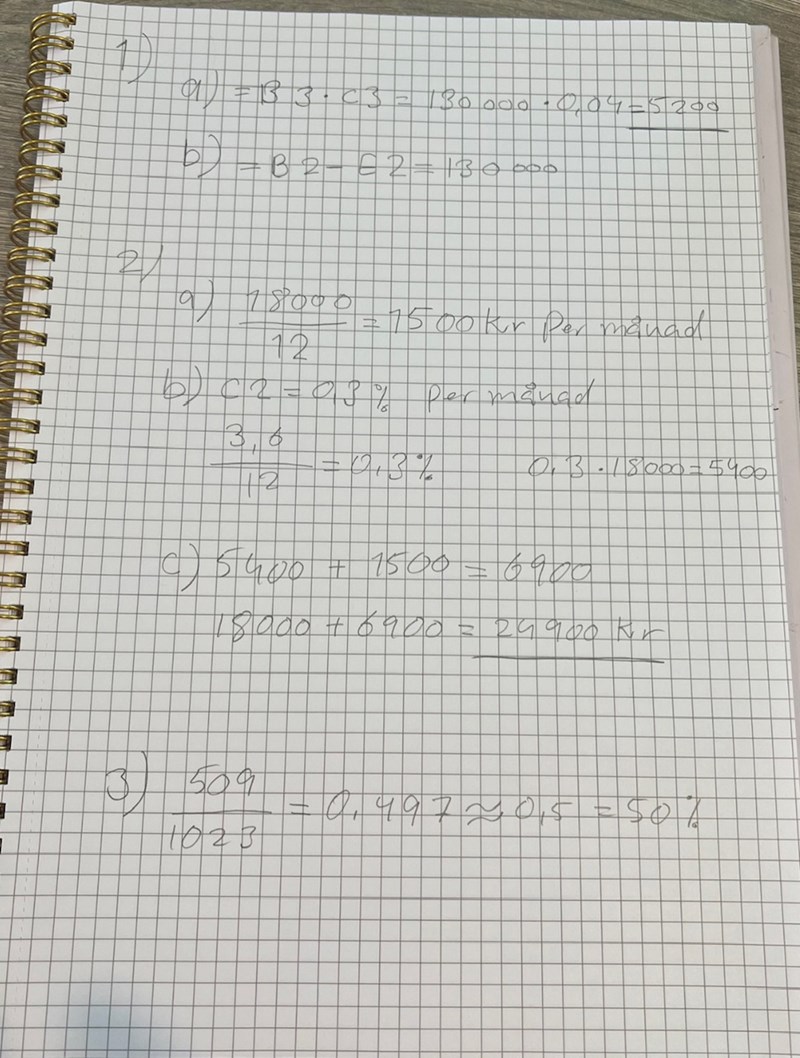 1)
a) = B3 · C3 = 130 000 · 0,04 = 5200
b) = B2 - E2 = 130 000
2)
a) 18000/12 = 1500 Kr Per månad
b) C2 = 0,3% per månad
3,6/12 = 0,3% 0,3 · 18000 = 5400
c) 5400 + 1500 = 6900
18000 + 6900 = 24900 Kr
3) 509/1023 = 0,497 ≈ 0,5 = 50%